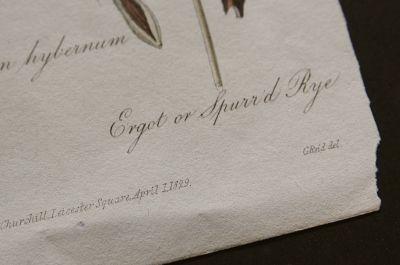 m hybernum
Ergot or Spurr'd Rye
G Reid del.
Churchill, Leicester Square, April 1, 1829.